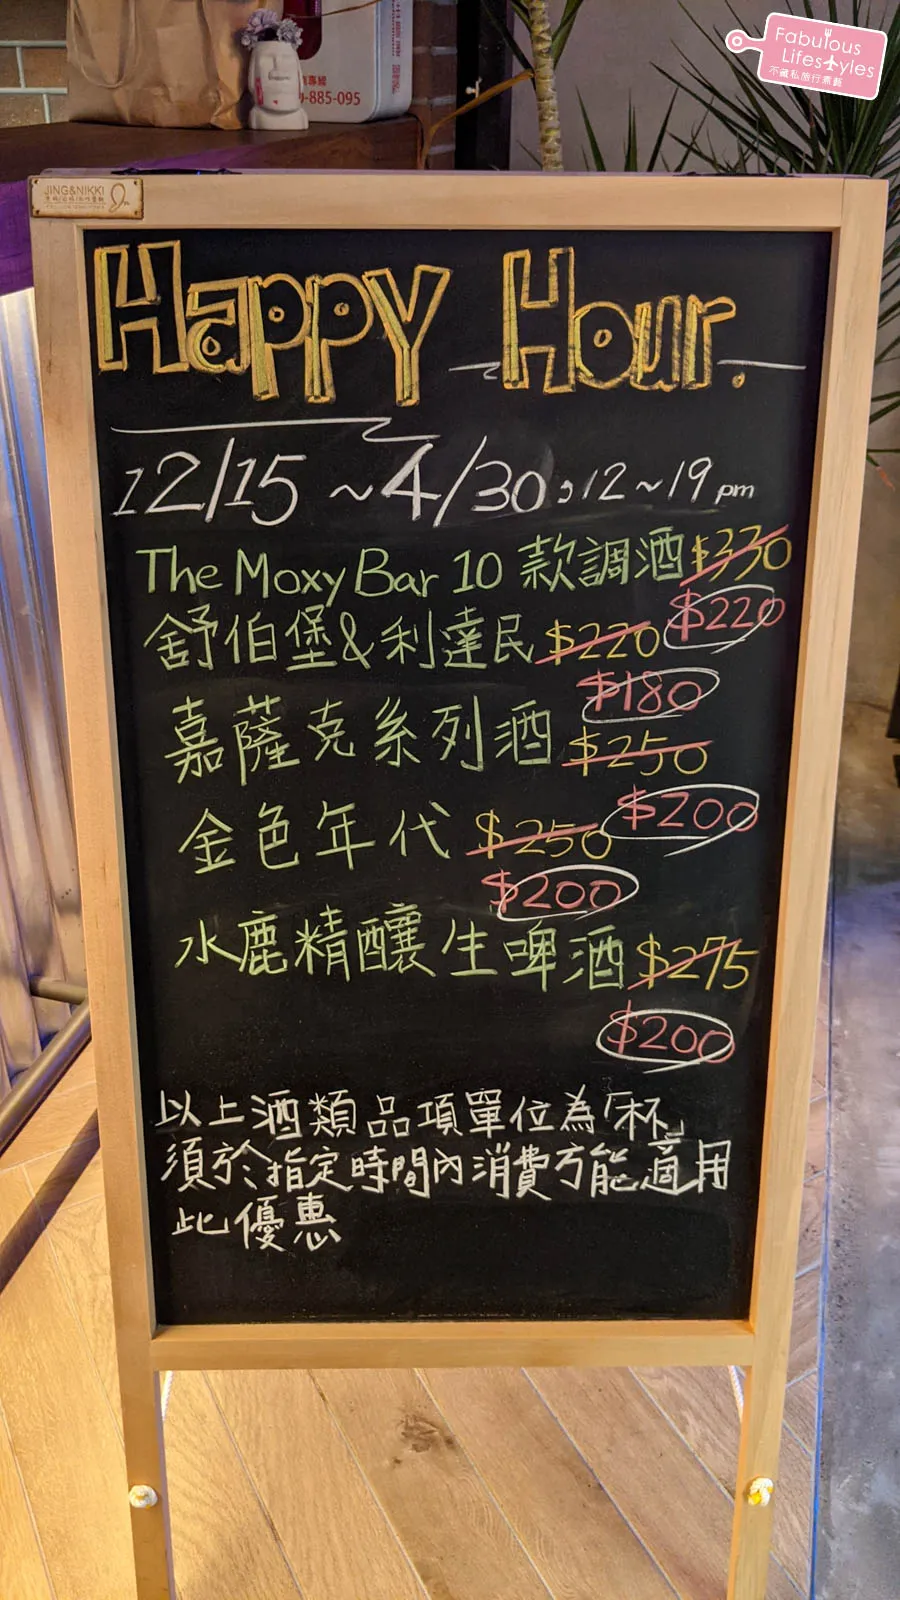 Fabulous
Lifestyles
不藏私旅行煮藝
885-095
JING&NIKKI
Happy Hour.
12/15 ~ 4/30, 12~19 pm
The Moxy Bar 10 款調酒 $330
$220
舒伯堡&利達民 $220
$180
嘉薩克系列酒 $250
$200
金色年代 $250
$200
水鹿精釀生啤酒 $275
$200
以上酒類品項單位為「杯」
須於指定時間內消費方能適用
此優惠